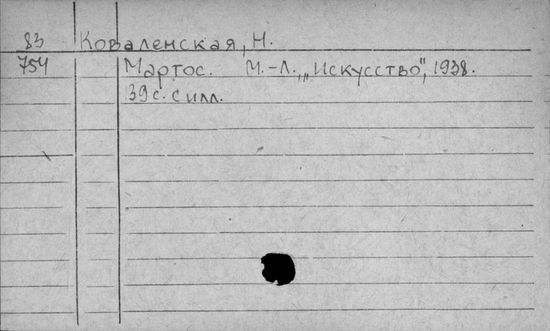 83 Коваленская, Н.
754 Мартос. М.-Л., „Искусство", 1938.
39с. с илл.